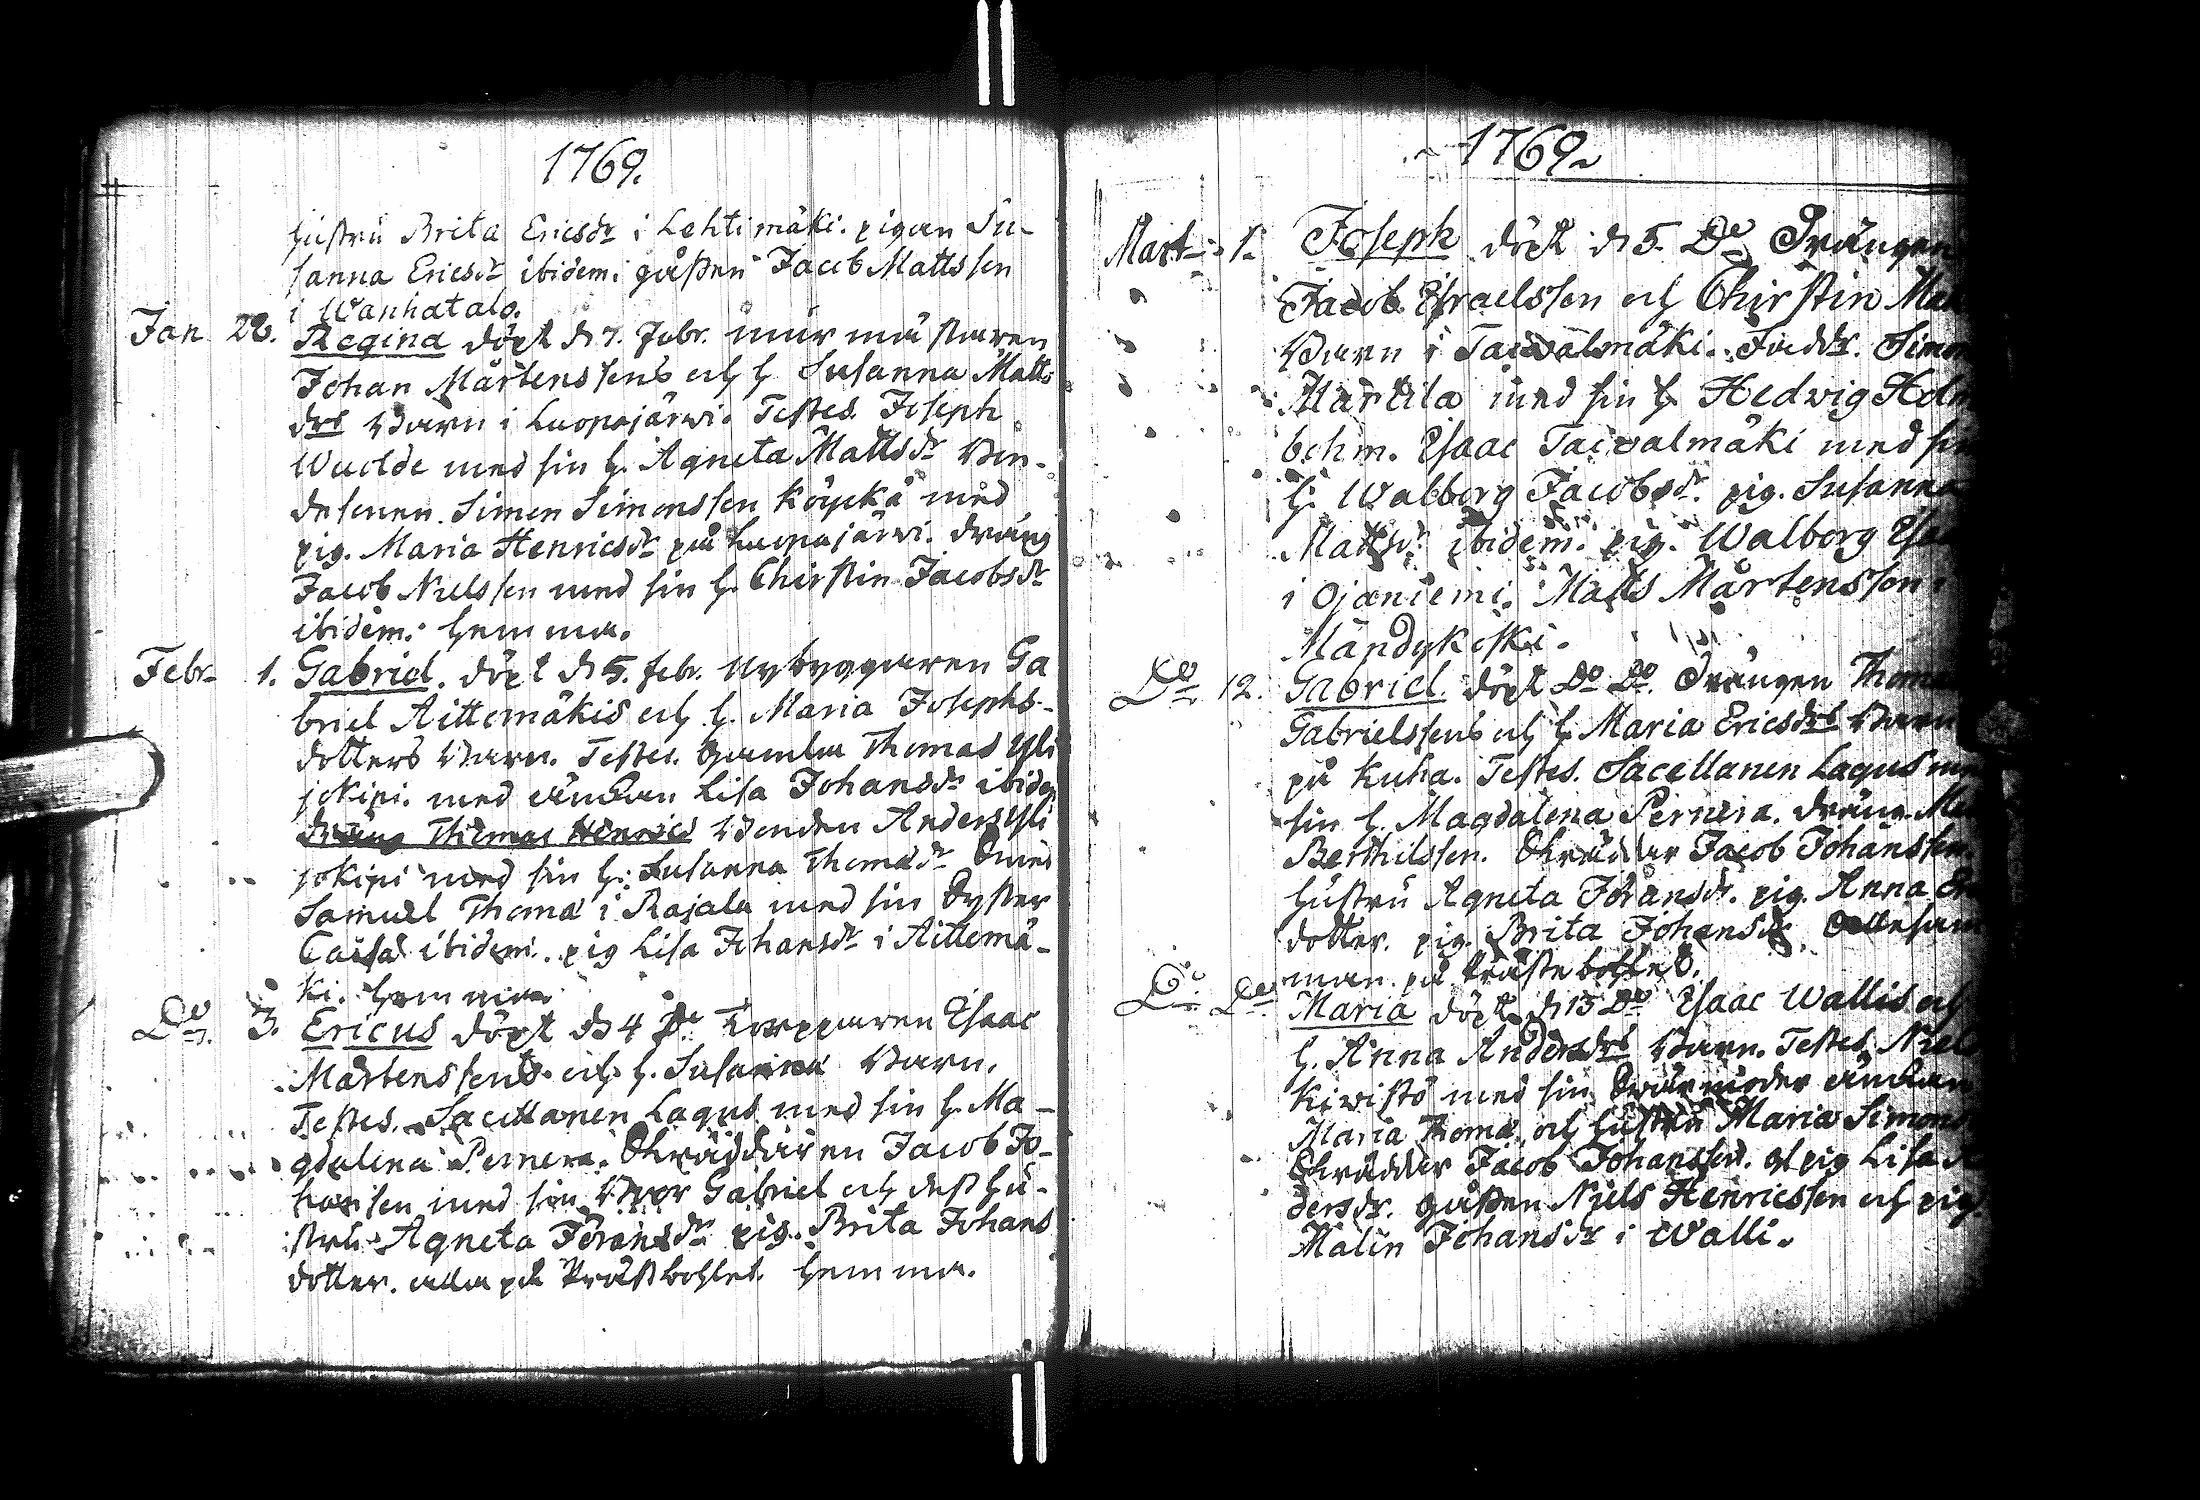 1769.
hustru Brita Ericsdr i Lehtimäki. pigan Su-
sanna Ericsdr ibidem. gåssen Jacob Mattssen
i Wanhatalo.
Jan 28. Regina döpt d 7. Febr. murmästaren
Johan Mårtenssens och h Susanna Matts
drs Barn i Luopajärwi. Testes. Joseph
Wuolde med sin h. Agneta Mattsdr Bon-
desonen. Simon Simonssen Köyckä med
pig. Maria Henricsdr på Luopajärwi. dräng
Jacob Nielssen med sin h. Chirstin Jacobsdr
ibidem. hemma.
Febr. 1. Gabriel. döpt d 5. febr. Nybyggaren Ga
briel Aittomäkis och h. Maria Josephs-
dotters Barn. Testes. Gamla Thomas Yli
jokipi. med änckan Lisa Johansdr ibidem
dräng Thomas Henric Bonden Anders Yli
jokipi med sin h. Susanna Thomædr
Samuel Thomæ i Rajala med sin Syster
Caisa ibidem. pig Lisa Johansdr i Aittomä-
ki. hemma
Do 3. Ericus döpt d 4 Do Torpparen Esaac
Mårtenssens och h. Susanna Barn.
Testes. Sacellanen Lagus med sin h. Ma-
gdalena Pernera. Skräddaren Jacob Jo-
hanssen med sin Bror Gabriel och dess hu-
stru Agneta Göransdr pig. Brita Johans
dotter. alla på Prästbohlet. hemma.
1769
Mart. 1. Joseph döpt d 5. Do Drängen
Jacob Israelssen och Chirstin
Barn i Taiwalmäki. Faddr. Simon
Marttila med sin h. Hedwig Holm
bohm. Esaac Taiwalmäki med sin
h. Walborg Jacobsdr. pig. Susanna
Mattsdr. ibidem. pig. Walborg
i Ojaniemi. Matts Mårtensson i
Mandykoski.
Do 12. Gabriel. döpt Do Do. Drängen
Gabrielssens och h. Maria Ericsdrs Barn
på Kuha. Testes. Sacellanen Lagus med
sin h. Magdalena Pernera. dräng
Berthilssen. Skräddar Jacob Johanssen.
hustru Agneta Göransdr. pig. Anna
dotter. pig. Brita Johansdr. Allesam
man på Prästebohlet.
Do Do Maria döpt d 13 Do Esaac Wallis och
h. Anna Andersdrs Barn. Testes Niels
Kiwistö med sin Swärmoder änckan
Maria Thomæ, och hustru Maria Simons
Skräddar Jacob Johanssen. och pig Lisa
dersdr. gåssen Niels Henricssen och pig.
Malin Johansdr i Walli.